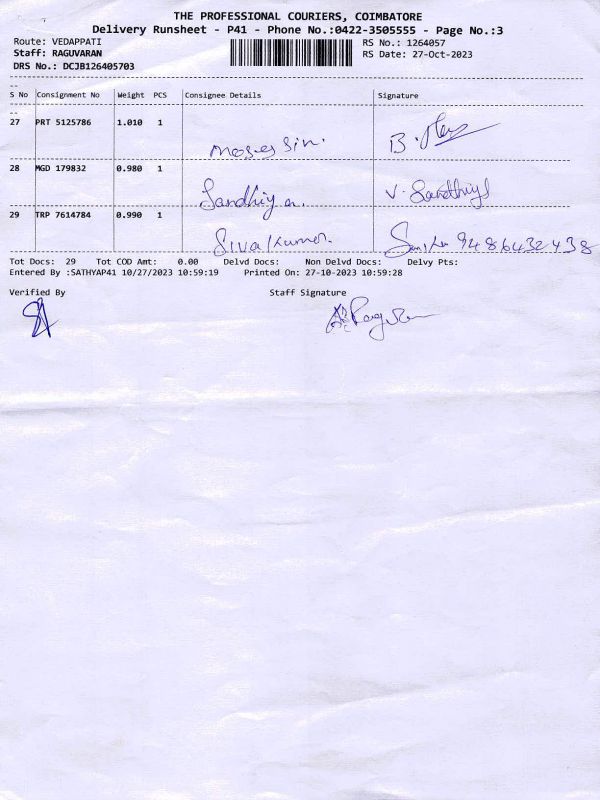 THE PROFESSIONAL COURIERS, COIMBATORE
Delivery Runsheet - P41 - Phone No.:0422-3505555 - Page No.:3
Route: VEDAPPATI RS No.: 1264057
Staff: RAGUVARAN RS Date: 27-Oct-2023
DRS No.: DCJB126405703
S No Consignment No Weight PCS Consignee Details Signature
27 PRT 5125786 1.010 1
Moses Sin. B.
28 MGD 179832 0.980 1
Sandhiya. V. Sandhiya
29 TRP 7614784 0.990 1
Sivakumar. 9486432438
Tot Docs: 29 Tot COD Amt: 0.00 Delvd Docs: Non Delvd Docs: Delvy Pts:
Entered By :SATHYAP41 10/27/2023 10:59:19 Printed On: 27-10-2023 10:59:28
Verified By Staff Signature